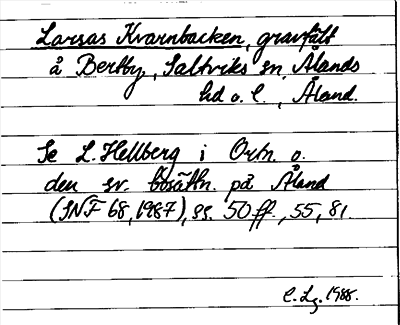 Larsas Kvarnbacken, gravfält
å Bertby, Saltviks sn, Ålands
hd o. l., Åland.
Se L. Hellberg i Ortn. o.
den sv. bosättn. på Åland
(SNF 68, 1987), ss. 50 ff., 55, 81.
C. Lg. 1988.